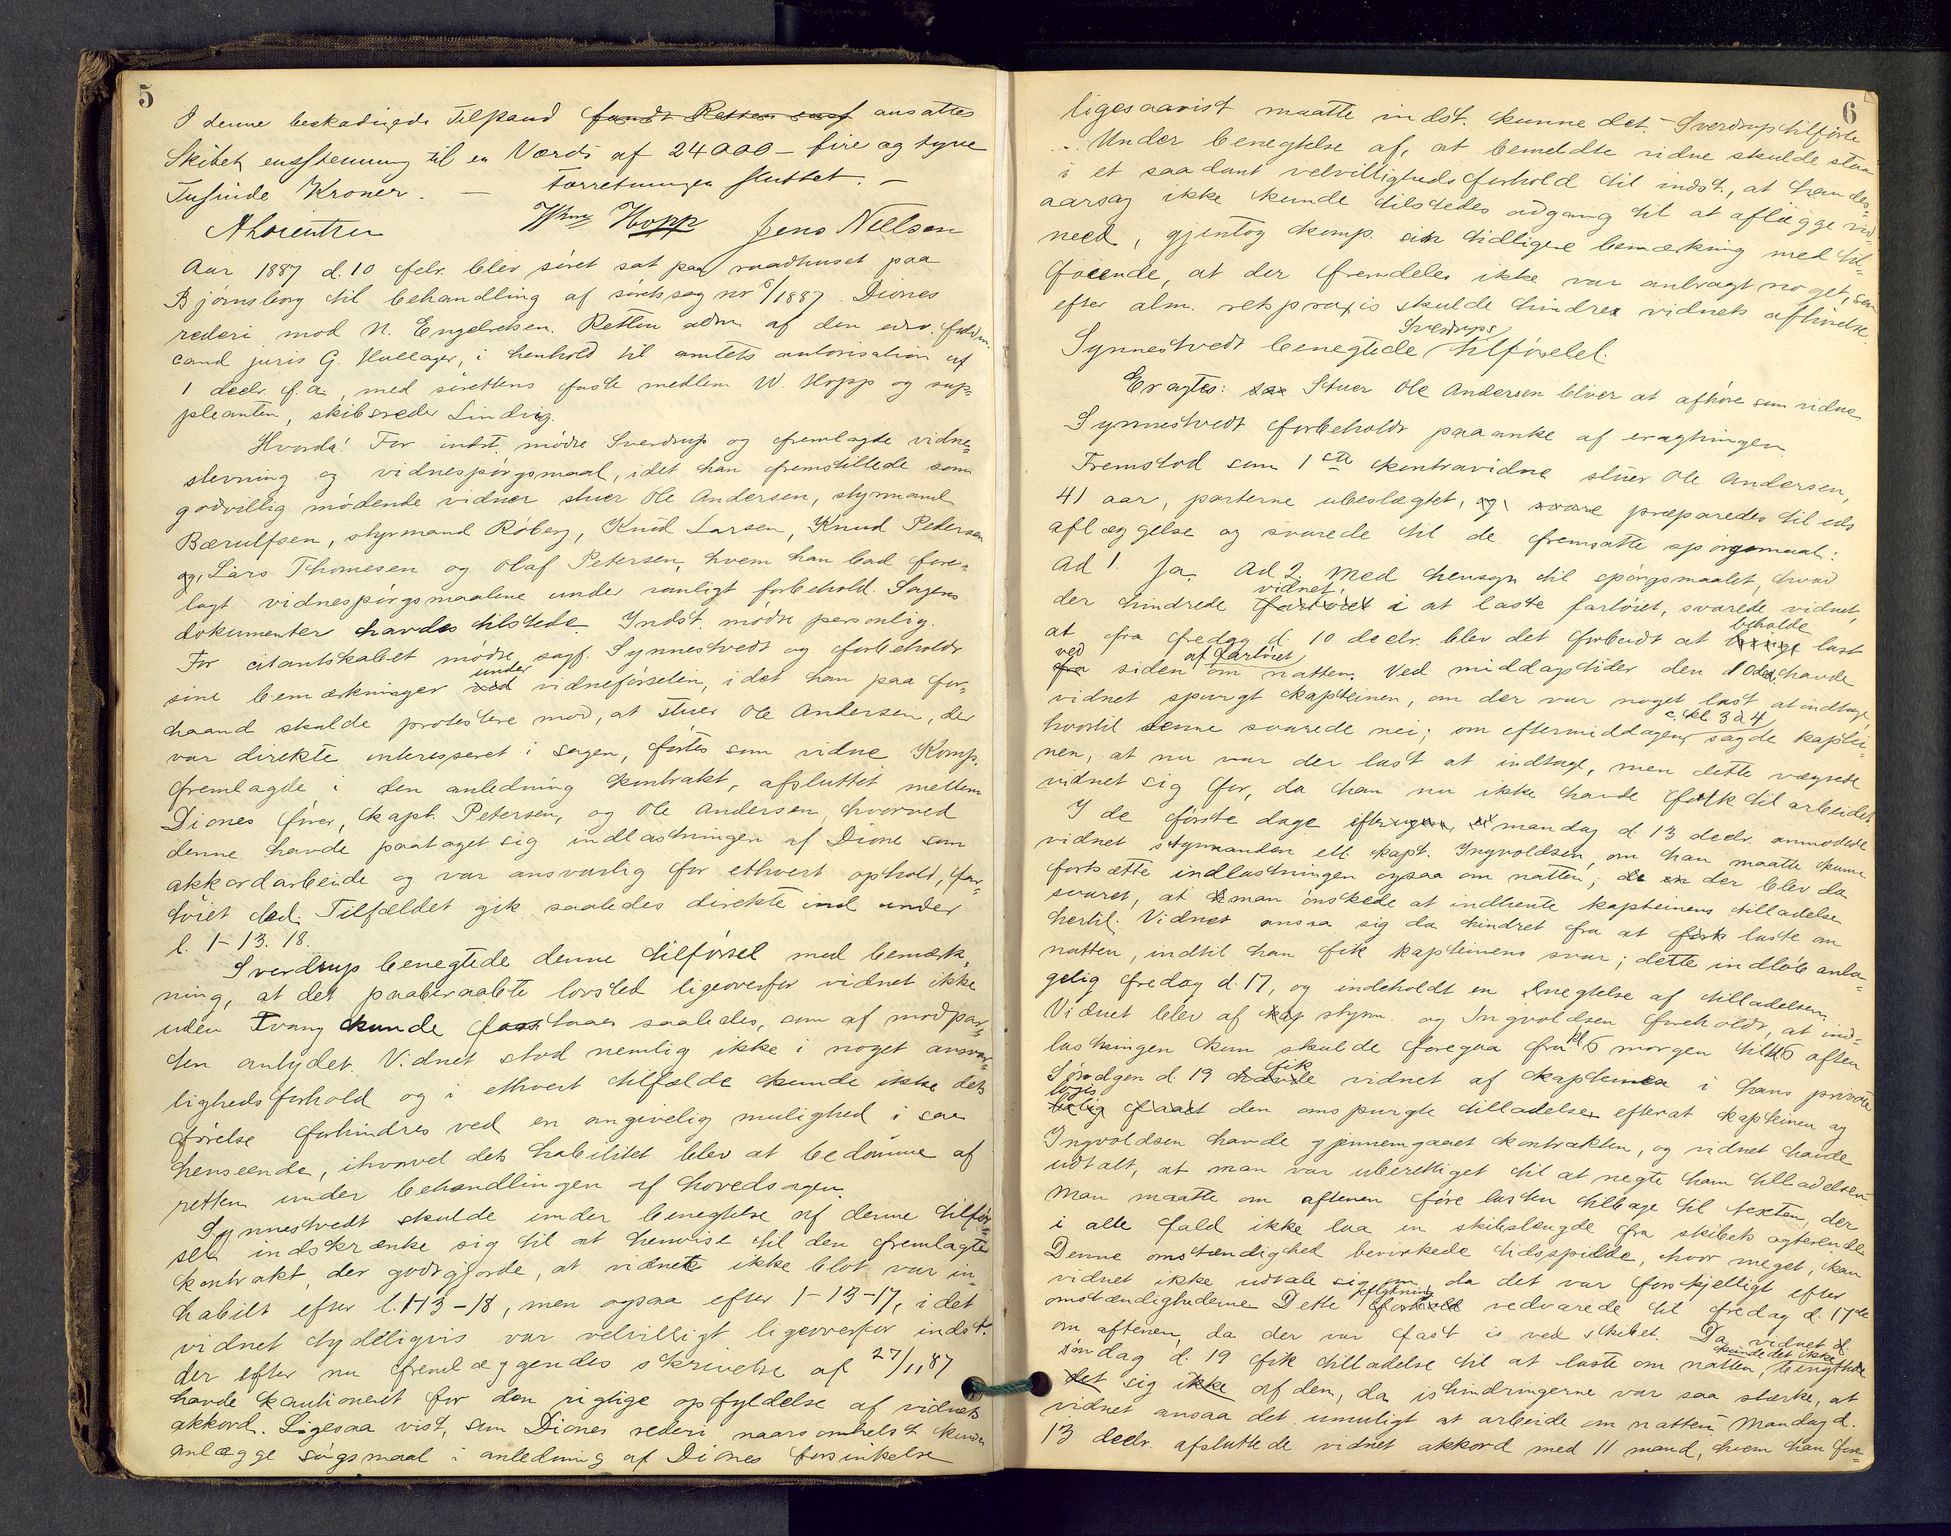 5
I denne beskadigede Tilstand fandt Retten enst ansattes
Skibet enstemmig til en Værdi af 24000 – fire og tyve
Tusinde Kroner. — Forretningen sluttet. –
A Lorentzen Hopp Jens Nielsen
Aar 1887 d. 10 febr. blev søret sat paa raadhuset paa
Bjørnsborg til behandling af søretssag nr 6/1887. Diones
rederi mod N. Engelretsen. Retten adm af den edsv. fuldm
cand juris G. Hallager, i henhold til amtets autorisation af
1 decbr. f.a, med sørettens faste medlem W. Hopp og sup-
pleanten, skibsreder Lindvig.
Hvorda! For indst. mødte Sverdrup og fremlagde vidne-
stevning og vidnespørgsmaal, idet han fremstillede som
godvillig mødende vidner stuer Ole Andersen, styrmand
Bærulfsen, styrmand Roberg, Knud Larsen, Knud Petersen
og, Lars Thomesen og Olaf Petersen, hvem han bad fore-
lagt vidnespørgsmaalene under vanligt forbehold. Sagens
dokumenter havdes tilstede. Indst. mødte personlig.
For citantskabet mødte sagf. Synnestvedt og forbeholdt
sine bemærkninger ved under vidneførselen, idet han paa for-
haand skulde protestere mod, at stuer Ole Andersen, der
var direkte interesseret i sagen, førtes som vidne Komp.
fremlagde i den anledning kontrakt, afsluttet mellem
Diones fører, kapt. Petersen, og Ole Andersen, hvorved
denne havde paataget sig indlastningen af Dione som
akkordarbeide og var ansvarlig for ethvert ophold, far-
tøiet led. Tilfældet gik saaledes direkte ind under
l. 1–13. 18.
Sverdrup benegtede denne tilførsel med bemærk-
ning, at det paaberaabte lovsted ligeoverfor vidnet ikke
uden Tvang kunde forstaaes saaledes, som af modpar-
ten antydet. Vidnet stod nemlig ikke i noget ansvar-
lighedsforhold og i ethvert tilfælde kunde ikke dets
førelse forhindres ved en angivelig mulighed i saa
henseende, ihvorvel dets habilitet blev at bedømme af
retten under behandlingen af hovedsagen.
Synnestvedt skulde under benegtelse af denne tilfør-
sel indskrænke sig til at henvise til den fremlagte
kontrakt, der godtgjorde, at vidnet ikke blot var in-
habilt efter l. 1–13–18, men ogsaa efter 1–13–17, idet
vidnet tydeligvis var velvilligt ligeoverfor indst.
der efter nu fremlæggendes skrivelse af 27/1 87
havde kautioneret for den rigtige opfyldelse af vidnets
akkord. Ligesaa vist, som Diones rederi naarsomhelst kunde
anlægge søgsmaal i anledning af Diones forsinkelse
6
ligesaavist maatte indst. kunne det. – Sverdrup tilførte
Under benegtelse af, at bemeldte vidne skulde staa
i et saadant velvillighedsforhold til indst., at han des-
aarsag ikke kunde tilstedes adgang til at aflægge vid-
need, gjentog komp. sin tidligere bemærkning med til-
føiende, at der fremdeles ikke var anbragt noget, som
efter alm. retspraxis skulde hindre vidnets afhørelse.
Synnestvedt benegtede Sverdrups tilførelel.
Eragtes: Stuer Ole Andersen bliver at afhøre som vidne
Synnestvedt forbeholdt paaanke af eragtningen
Fremstod som 1ste kontravidne stuer Ole Andersen,
41 aar, parterne ubeslægtet, og svare præparedes til eds
aflæggelse og svarede til de fremsatte spørgsmaal:
Ad 1. Ja. Ad 2. Med hensyn til spørgsmaalet, hvad
der hindrede fartøiet vidnet i at laste fartøiet, svarede vidnet,
at fra fredag d. 10 decbr. blev det forbudt at beholde last
fra ved siden af fartøiet om natten. Ved middagstider den 10de havde
vidnet spurgt kapteinen, om der var noget last at indtage,
hvortil denne svarede nei; om eftermiddagen c. kl 3 à 4 sagde kaptei-
nen, at nu var der last at indtage, men dette vægrede
vidnet sig for, da han nu ikke havde folk til arbeidet
I de første dage mandag d. 13 decbr. anmodede
vidnet styrmanden ell. kapt. Ingvoldsen, om han maatte kunne
fortsætte indlastningen ogsaa om natten; der blev da
svaret, at man ønskede at indhente kapteinens tilladelse
hertil. Vidnet ansaa sig da hindret fra at laste om
natten, indtil han fik kapteinens svar; dette indløb anta-
gelig fredag d. 17, og indeholdt en negtelse af tilladelsen.
Vidnet blev af kap styrm. og Ingvoldsen foreholdt, at ind-
lastningen kun skulde foregaa fra kl 6 morgen til 6 aften
Søndgen d. 19 havde fik vidnet af kapteinen i hans private
bolig logis faaet den omspurgte tilladelse efterat kapteinen og
Ingvoldsen havde gjennemgaaet kontrakten, og vidnet havde
udtalt, at man var uberettiget til at negte ham tilladelsen
Man maatte om aftenen føre lasten tilbage til texten, der
i alle fald ikke laa en skibslængde fra skibets agterende
Denne omstændighed bevirkede tidsspilde, hvor meget, kan
vidnet ikke udtale sig om, da det var forskjelligt efter
omstændighederne Dette forhold vedvarede til fredag d. 17de
om aftenen, da der var fast is ved skibet. Da vidnet d.
søndag d. 19 fik tilladelse til at laste om natten, kunde det ikke benyttede
det sig ikke af den, da ishindringerne var saa stærke, at
vidnet ansaa det umuligt at arbeide om natten. Mandag d.
13 decbr. afsluttede vidnet akkord med 11 mand, hvem han fore-